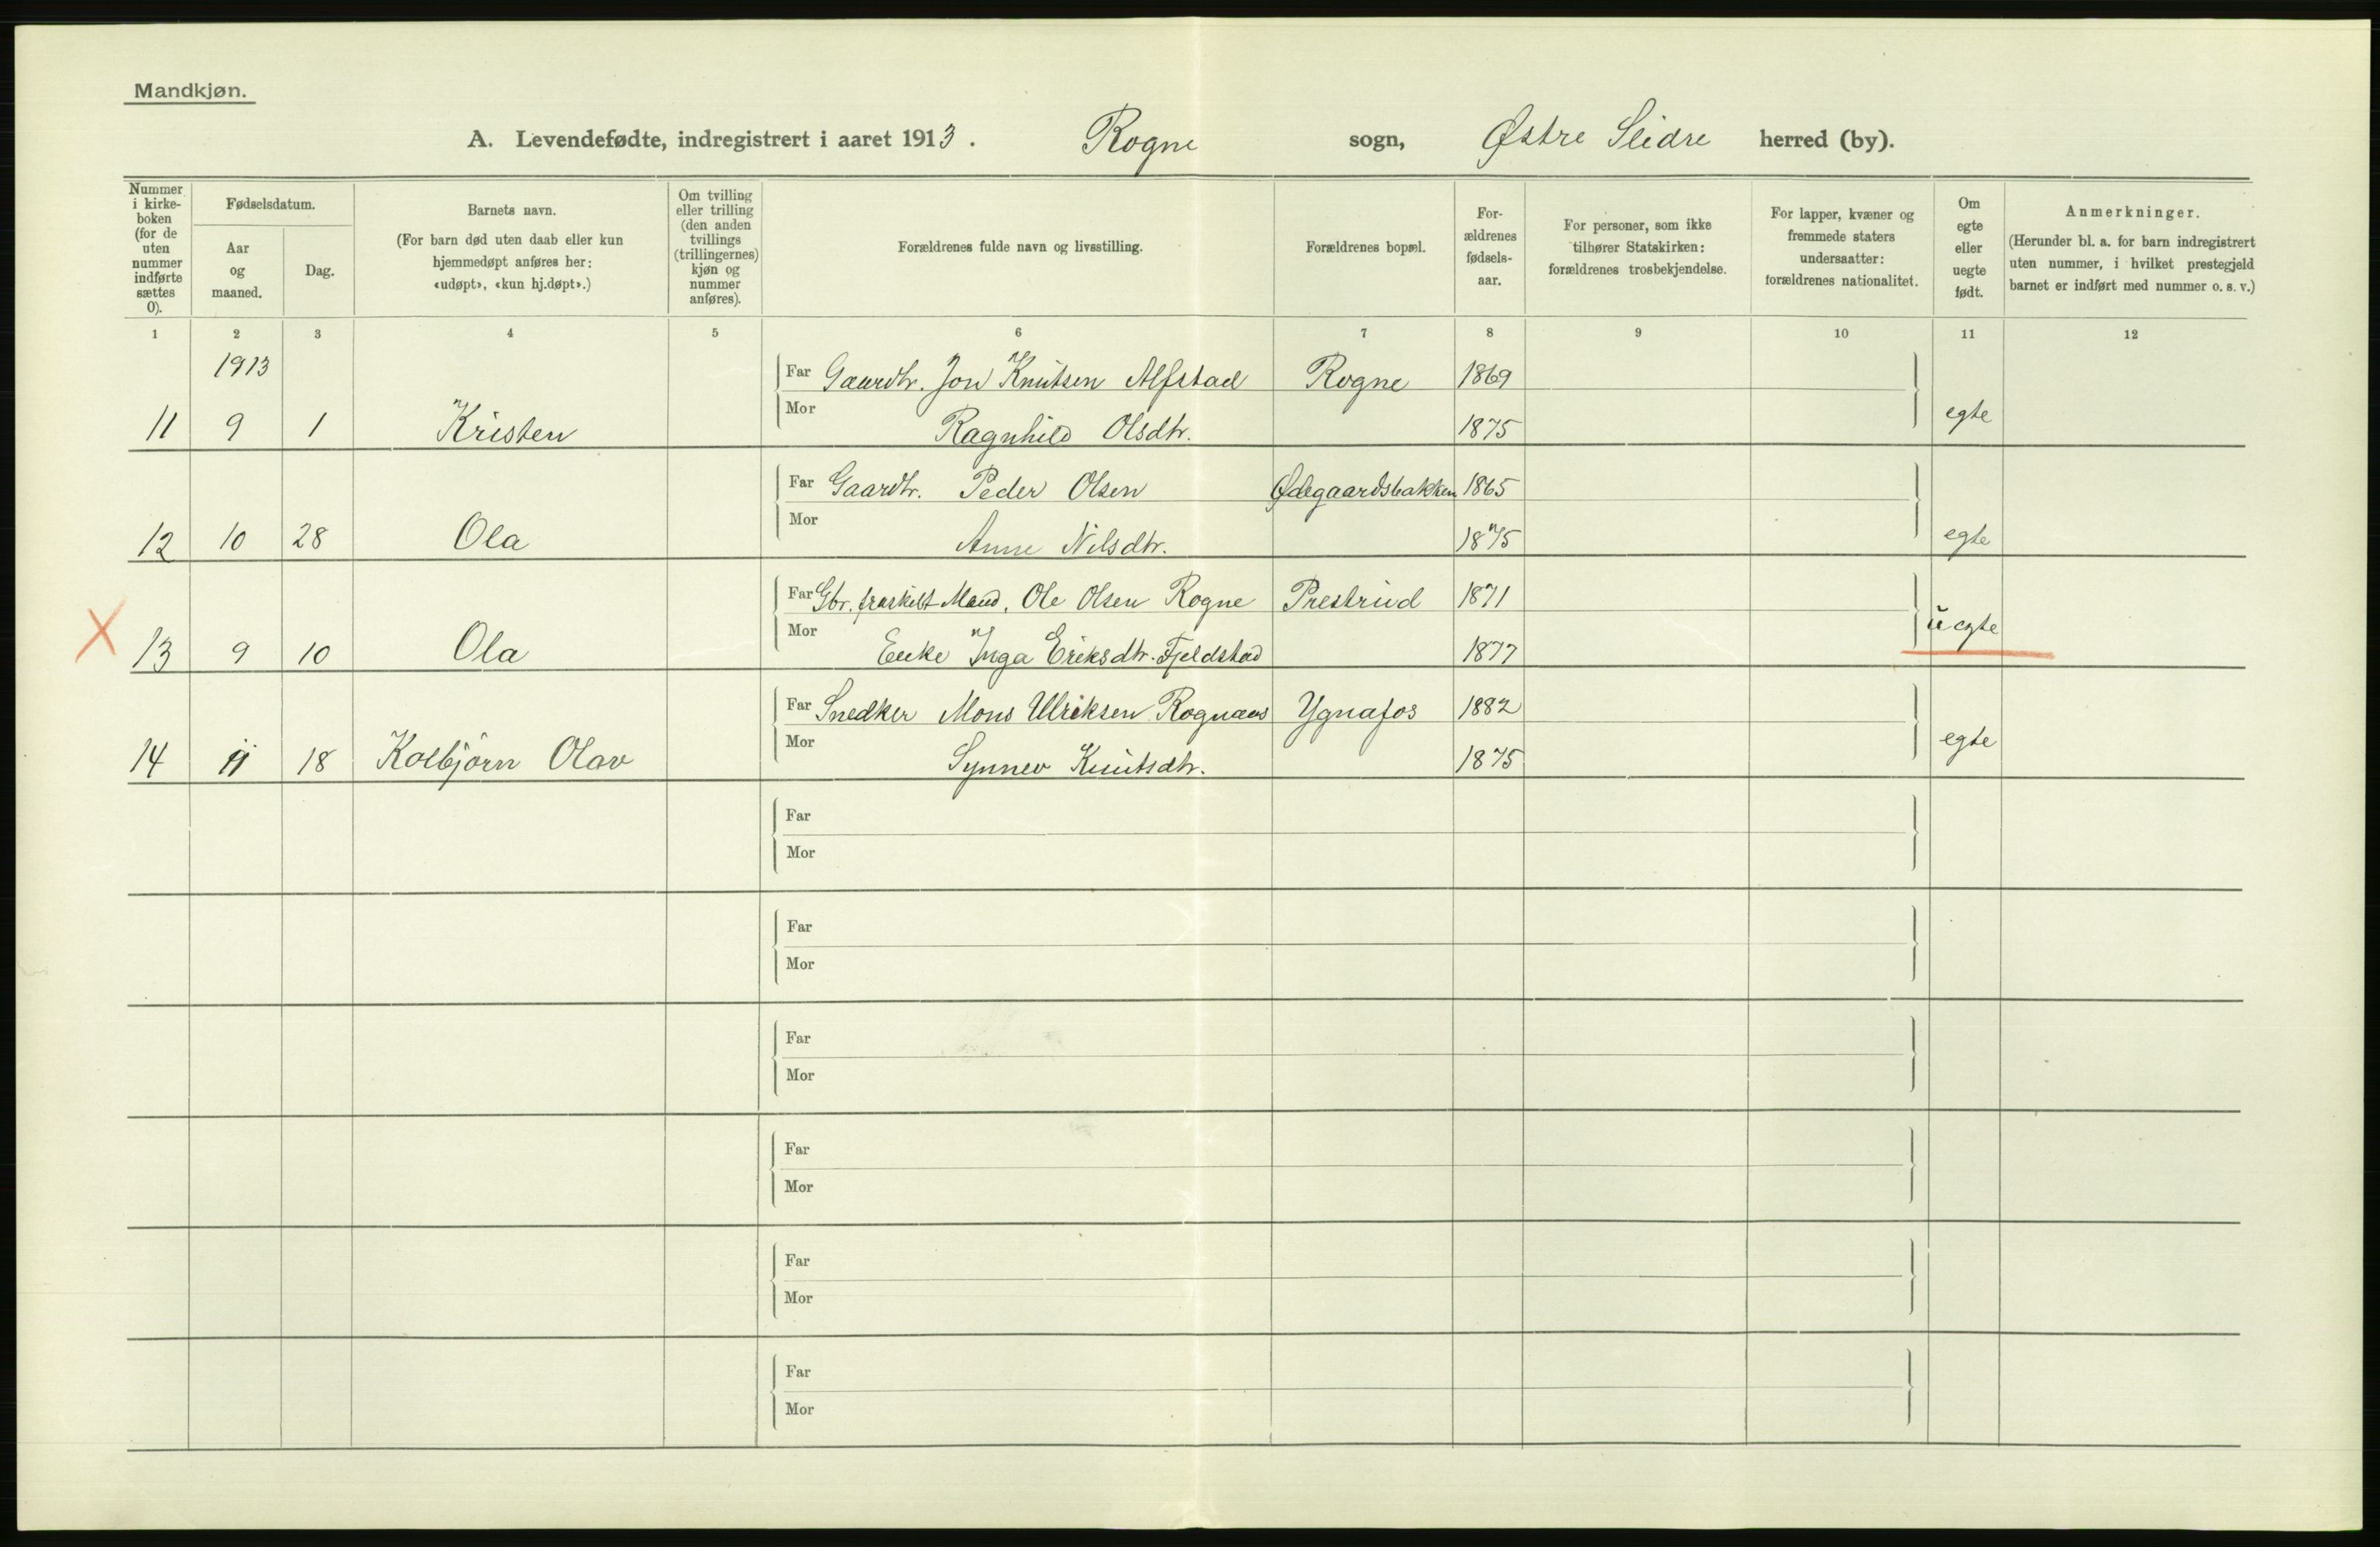 Mandkjøn.
A. Levendefødte, indregistrert i aaret 1913. Rogne sogn, Østre Slidre herred (by).
Nummer i kirke-boken (for de uten nummer indførte sættes 0).
Fødselsdatum.
Aar og maaned.
Dag.
Barnets navn.
(For barn død uten daab eller kun hjemmedøpt anføres her: «udøpt», «kun hj.døpt».)
Om tvilling eller trilling (den anden tvillings (trillingernes) kjøn og nummer anføres).
Forældrenes fulde navn og livsstilling.
Forældrenes bopæl.
For-ældrenes fødsels-aar.
For personer, som ikke tilhører Statskirken: forældrenes trosbekjendelse.
For lapper, kvæner og fremmede staters undersaatter: forældrenes nationalitet.
Om egte eller uegte født.
Anmerkninger.
(Herunder bl. a. for barn indregistrert uten nummer, i hvilket prestegjeld barnet er indført med nummer o. s. v.)
1 2 3 4 5 6 7 8 9 10 11 12
1913 Far Gaardbr. Jon Knutsen Alfstad Rogne 1869
11 9 1 Kristen Mor Ragnhild Olsdtr. 1875 egte
Far Gaardbr. Peder Olsen Ødegaardsbakken 1865
12 10 28 Ola Mor Anne Nilsdtr. 1875 egte
Far Gbr. fraskilt Mand, Ole Olsen Rogne Prestrud 1871
X 13 9 10 Ola Mor Enke Inga Eriksdtr. Fjeldstad 1877 uegte
Far Snedker Mons Ulriksen Rognaas Ygnafos 1882
14 11 18 Kolbjørn Olav Mor Synnev Knutsdtr. 1875 egte
Far
Mor
Far
Mor
Far
Mor
Far
Mor
Far
Mor
Far
Mor